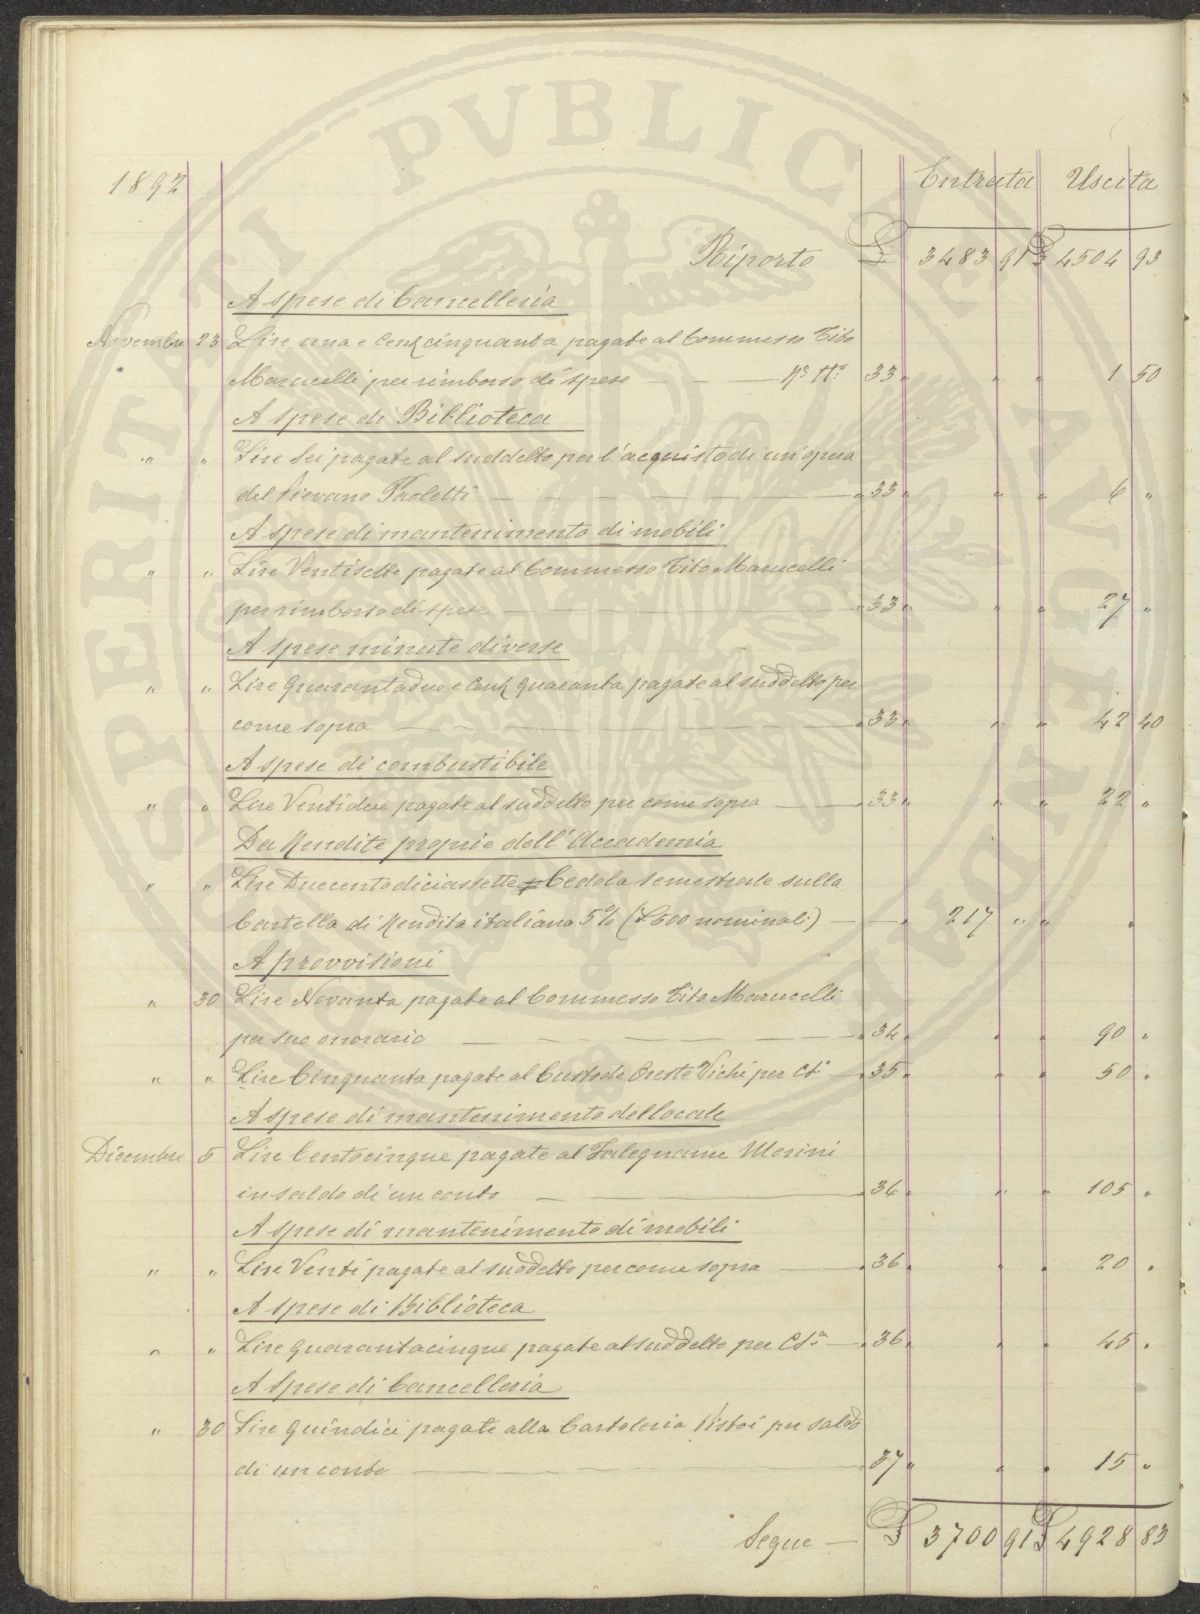 1892 Entrata Uscita
Riporto £ 3483 91 £ 4504 93
A spese di Cancelleria
Novembre 23 Lire una e Cent cinquanta pagate al Commesso Tito
Marucelli per rimborso di spese — No 33 " " " 1 50
A spese di Biblioteca
" " Lire Sei pagate al suddetto per l'acquisto di un'opera
del Pievano Paoletti — " 33 " " " 6 "
A spese di mantenimento di mobili
" " Lire Ventisette pagate al Commesso Tito Marucelli
per rimborso di spese — " 33 " " " 27 "
A spese minute diverse
" " Lire Quarantadue e Cent quaranta pagate al suddetto per
come sopra — " 33 " " " 42 40
A spese di combustibile
" " Lire Ventidue pagate al suddetto per come sopra — " 33 " " " 22 "
Da Rendite proprie dell'Accademia
" " Lire Duecentodiciassette p Cedola semestrale sulla
Cartella di Rendita italiana 5% (£500 nominali) — " 217 " " "
A provvisioni
" 30 Lire Novanta pagate al Commesso Tito Marucelli
per suo onorario — " 34 " " " 90 "
" " Lire Cinquanta pagate al Custode Oreste Vichi per Cto — 35 " " " 50 "
A spese di mantenimento del locale
Dicembre 5 Lire Centocinque pagate al Falegname Morini
in saldo di un conto — " 36 " " " 105 "
A spese di mantenimento di mobili
" " Lire Venti pagate al suddetto per come sopra — " 36 " " " 20 "
A spese di Biblioteca
" " Lire quarantacinque pagate al suddetto per Csa — " 36 " " " 45 "
A spese di Cancelleria
" 30 Lire quindici pagate alla Cartoleria Pistoi per saldo
di un conto — 37 " " " 15 "
Segue — £ 3700 91 £ 4928 83
PROSPERITATI PVBLICAE AVGENDAE